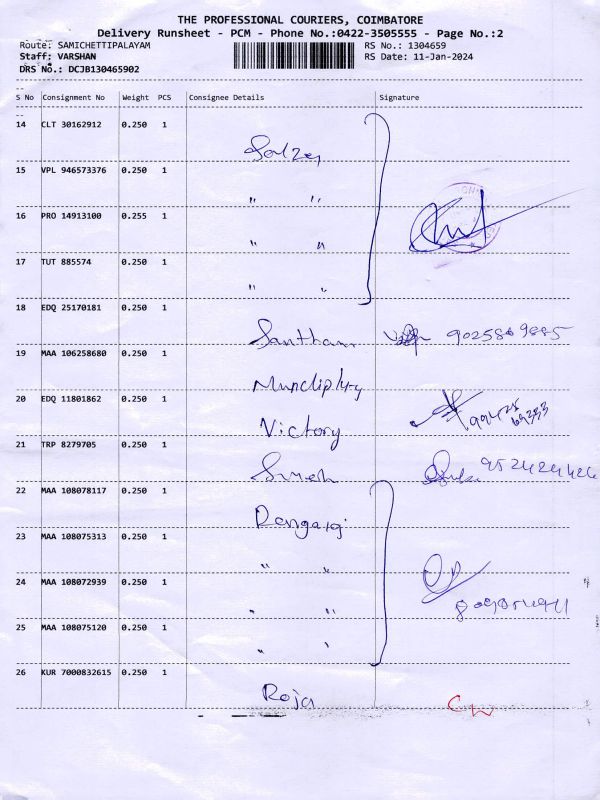 THE PROFESSIONAL COURIERS, COIMBATORE
Delivery Runsheet - PCM - Phone No.:0422-3505555 - Page No.:2
Route: SAMICHETTIPALAYAM RS No.: 1304659
Staff: VARSHAN RS Date: 11-Jan-2024
DRS No.: DCJB130465902
S No Consignment No Weight PCS Consignee Details Signature
14 CLT 30162912 0.250 1
Salzer
15 VPL 946573376 0.250 1
" "
16 PRO 14913100 0.255 1
" "
17 TUT 885574 0.250 1
" "
18 EDQ 25170181 0.250 1
Santham
19 MAA 106258680 0.250 1
20 EDQ 11801862 0.250 1
Victory
21 TRP 8279705 0.250 1
22 MAA 108078117 0.250 1
23 MAA 108075313 0.250 1
" "
24 MAA 108072939 0.250 1
" "
25 MAA 108075120 0.250 1
" "
26 KUR 7000832615 0.250 1
Roja CW